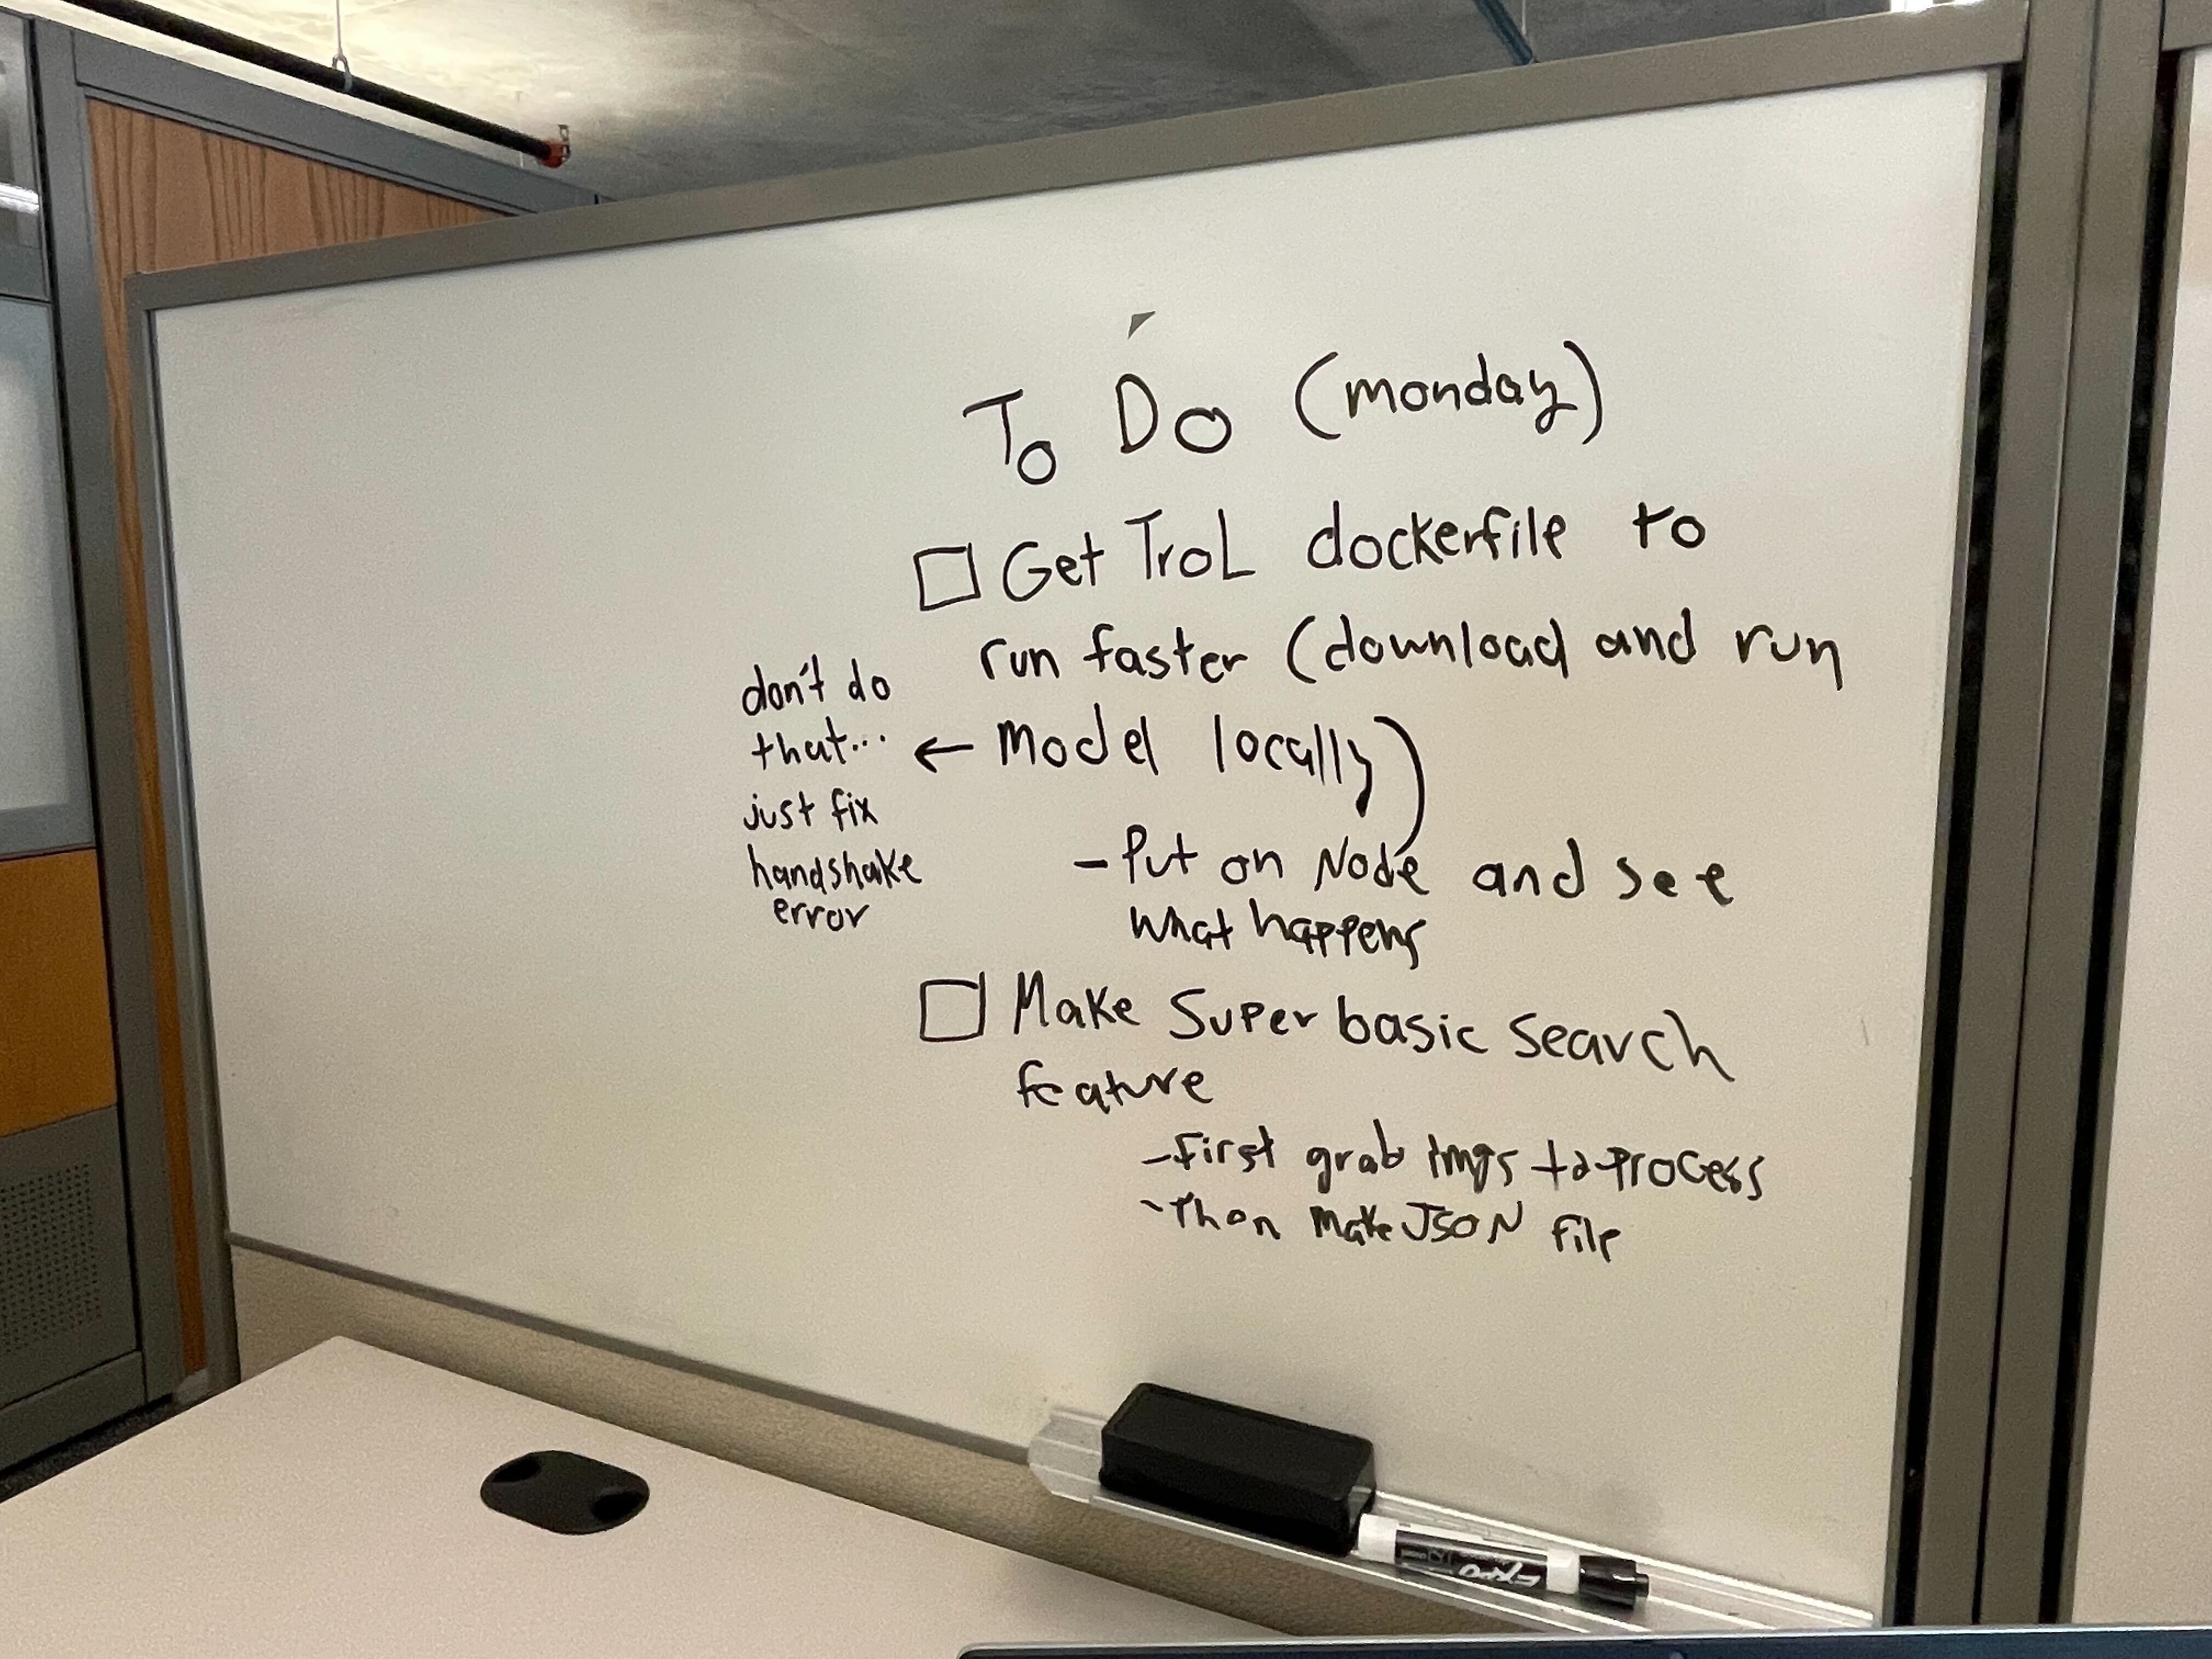 To Do (monday)
Get TroL dockerfile to
run faster (download and run
← model locally)
don't do
that...
just fix
handshake
error
- Put on Node and see
what happens
Make Super basic search
feature
- First grab imgs to process
- Then make JSON file
EXPO